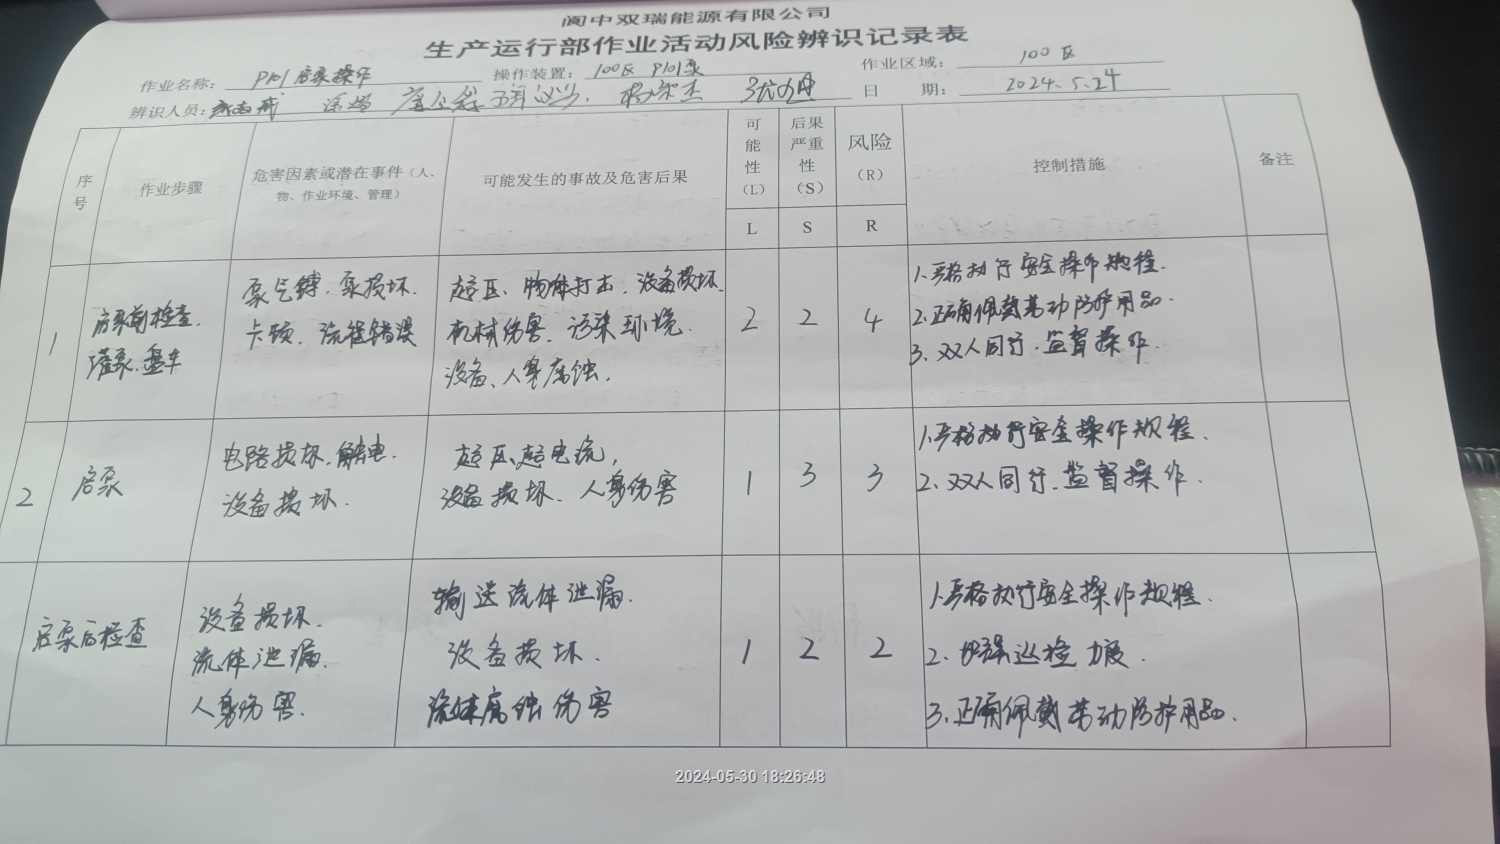 阆中双瑞能源有限公司
生产运行部作业活动风险辨识记录表
作业名称： P101启泵操作 操作装置： 100区 P101泵 作业区域： 100区
辨识人员： 日 期： 2024.5.24
序号 作业步骤 危害因素或潜在事件（人、物、作业环境、管理） 可能发生的事故及危害后果 可能性（L） 后果严重性（S） 风险（R） 控制措施 备注
L S R
1 启泵前检查. 灌泵.盘车
泵气缚.泵损坏.
卡顿.流程错误
超压、物体打击.设备损坏.
机械伤害.污染环境.
设备、人身腐蚀.
2 2 4
1.严格执行安全操作规程.
2.正确佩戴劳动防护用品.
3.双人同行.监督操作.
2 启泵
电路损坏.触电.
设备损坏.
超压、超电流,
设备损坏.人身伤害
1 3 3
1.严格执行安全操作规程.
2.双人同行.监督操作.
启泵后检查
设备损坏.
流体泄漏.
人身伤害.
输送流体泄漏.
设备损坏.
流体腐蚀伤害
1 2 2
1.严格执行安全操作规程.
2.加强巡检力度.
3.正确佩戴劳动防护用品.
2024-05-30 18:26:48